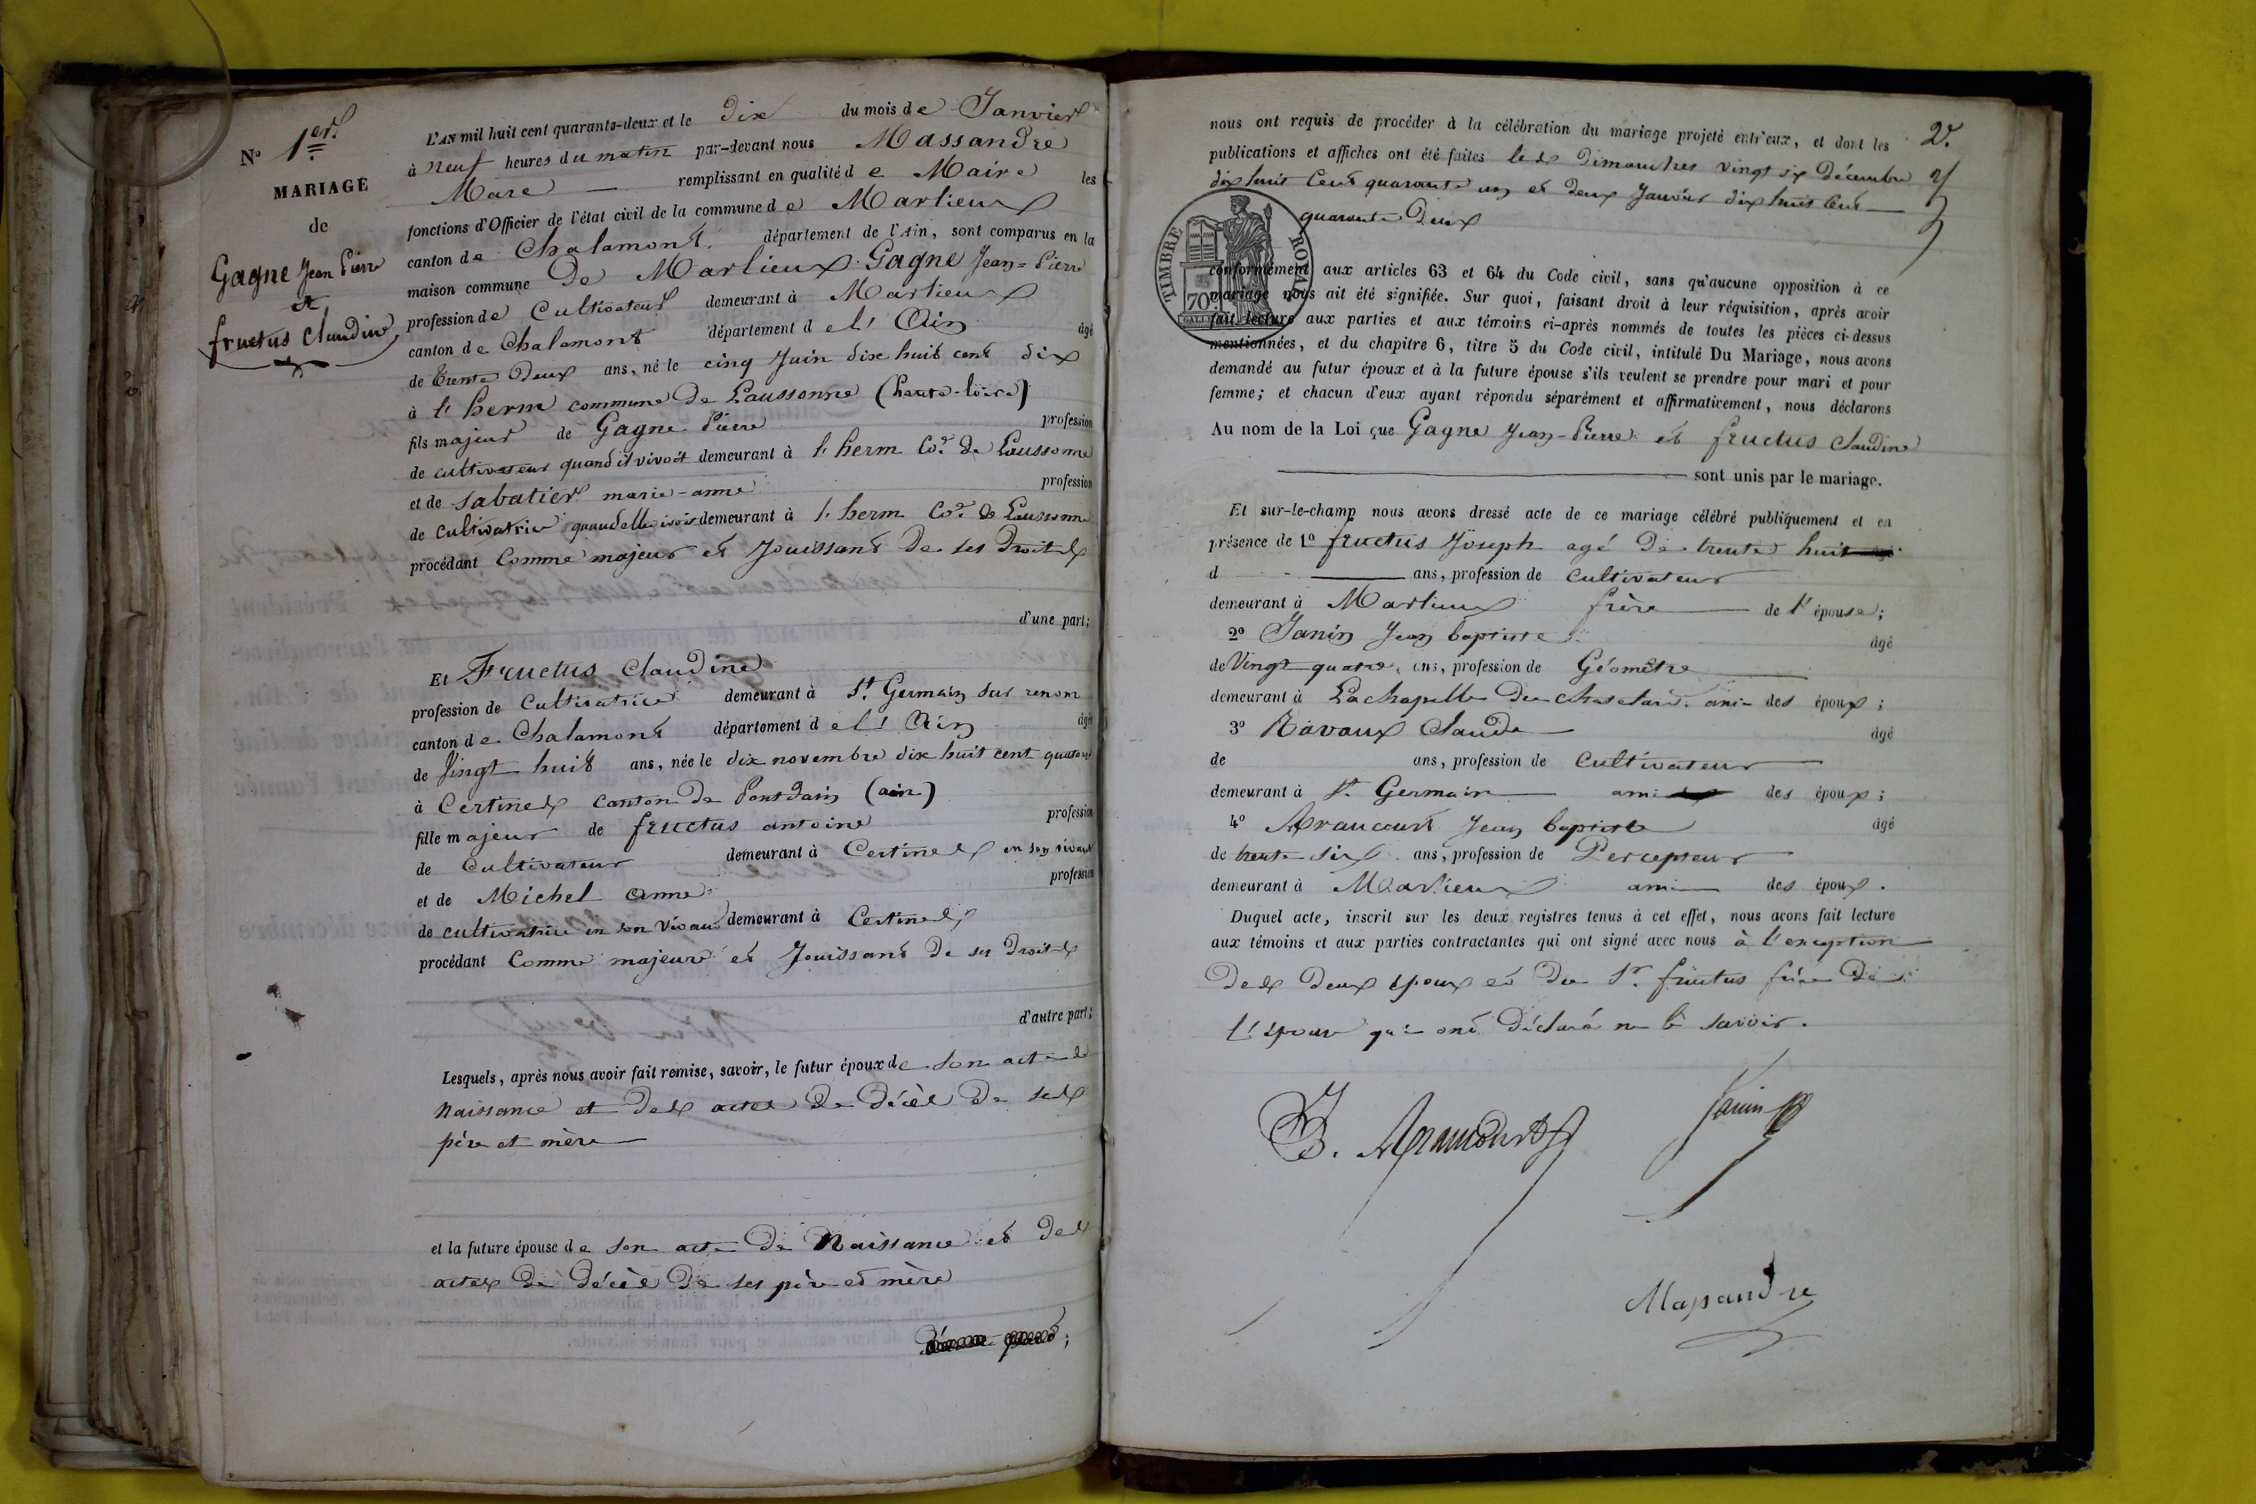 N° 1er.
MARIAGE
de
Gagne Jean Pierre
et
fructus Claudine
L'AN mil huit cent quarante-deux et le dix du mois de Janvier
à neuf heures du matin par-devant nous Massandre
Marc remplissant en qualité de Maire les
fonctions d'Officier de l'état civil de la commune de Marlieux
canton de Chalamont. département de l'Ain, sont comparus en la
maison commune De Marlieux Gagne Jean-Pierre
profession de Cultivateur demeurant à Marlieux
canton de Chalamont département de l'Ain âgé
de trente Deux ans, né le cinq Juin dix huit cent dix
à l'herm commune de Laussonne (haute-loire)
fils majeur de Gagne Pierre profession
de cultivateur quand il vivoit demeurant à l'herm Cne De Laussonne
et de Sabatier marie-anne profession
de Cultivatrice quand elle vivoit demeurant à l'herm Cne de Laussonne
procédant Comme majeur et Jouissant De ses Droits
d'une part;
Et Fructus Claudine
profession de Cultivatrice demeurant à St. Germain sur renon
canton de Chalamont département de l'Ain âgée
de Vingt huit ans, née le dix novembre dix huit cent quatorze
à Certines canton De Pontdain (ain)
fille majeur de fructus antoine profession
de Cultivateur demeurant à Certines en son vivant
et de Michel anne profession
de cultivatrice en son vivant demeurant à Certines
procédant Comme majeure et Jouissant De ses Droits
d'autre part;
Lesquels, après nous avoir fait remise, savoir, le futur époux de son acte de
Naissance et des actes De Décès De ses
père et mère
et la future épouse de son acte De Naissance et des
actes De Décès De ses père et mère
;
nous ont requis de procéder à la célébration du mariage projeté entr'eux, et dont les 2e.
publications et affiches ont été faites les Dimanches vingt six Décembre
dix huit Cent quarante un et deux Janvier dix huit Cent
quarante Deux
TIMBRE ROYAL
70c
conformément aux articles 63 et 64 du Code civil, sans qu'aucune opposition à ce
mariage nous ait été signifiée. Sur quoi, faisant droit à leur réquisition, après avoir
fait lecture aux parties et aux témoins ci-après nommés de toutes les pièces ci-dessus
mentionnées, et du chapitre 6, titre 5 du Code civil, intitulé Du Mariage, nous avons
demandé au futur époux et à la future épouse s'ils veulent se prendre pour mari et pour
femme; et chacun d'eux ayant répondu séparément et affirmativement, nous déclarons
Au nom de la Loi que Gagne Jean-Pierre et fructus Claudine
sont unis par le mariage.
Et sur-le-champ nous avons dressé acte de ce mariage célébré publiquement et en
présence de 1° fructus Joseph agé De trente huit
d ans, profession de Cultivateur
demeurant à Marlieux frère de l'épouse;
2° Janin Jean baptiste âgé
de Vingt quatre ans, profession de Géomètre
demeurant à La chapelle Du Chatelard. ami des époux;
3° Ravoux Claude âgé
de ans, profession de Cultivateur
demeurant à St. Germain ami des époux;
4° Arancourt Jean baptiste âgé
de trente six ans, profession de Percepteur
demeurant à Marlieux ami des époux.
Duquel acte, inscrit sur les deux registres tenus à cet effet, nous avons fait lecture
aux témoins et aux parties contractantes qui ont signé avec nous à l'exception
Des Deux époux et Du Sr. fructus frère De
l'épouse qui ont Déclaré ne le savoir.
J B. Arancourt
Janin
Massandre